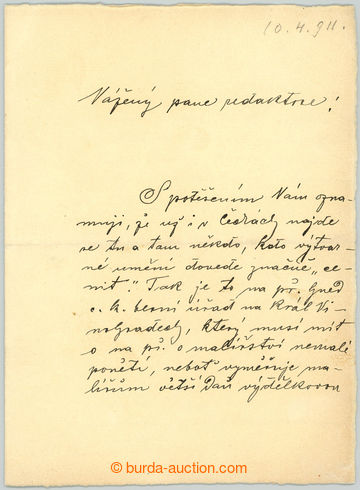 10.4.911.
Vážený pane redaktore!
S potěšením Vám ozna-
muji, že už i v Čechách najde
se tu a tam někdo, kdo výtvar-
né umění dovede značně „ce-
nit." Tak je to na př. hned
c. k. berní úřad na Král. Vi-
nohradech, který musí mít
o na př. o malířství nemalé
ponětí, neboť vyměřuje ma-
lířům větší daň výdělkovou
burda-auction.com